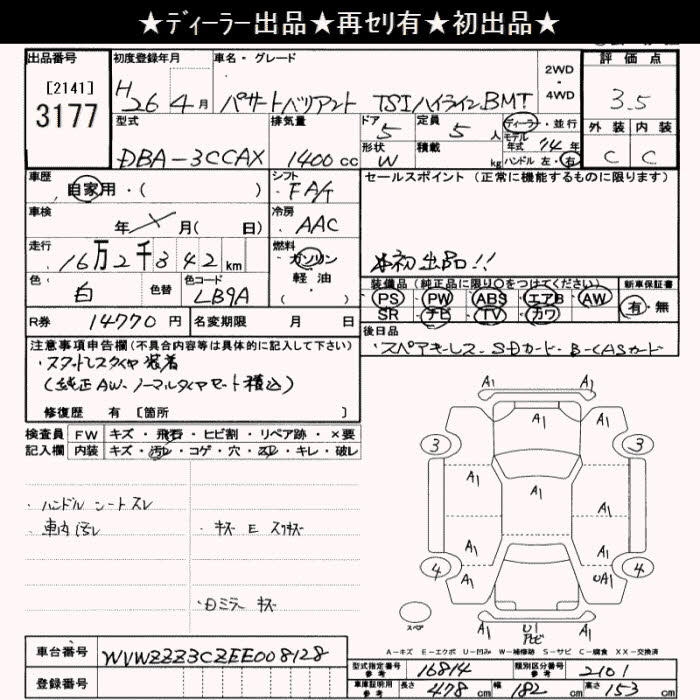 ★ディーラー出品★再セリ有★初出品★
出品番号
[2141]
3177
初度登録年月
H26年4月
車名・グレード
パサートバリアント TSIハイラインBMT
2WD
・
4WD
評価点
3.5
外装 内装
C C
型式
DBA-3CCAX
排気量
1400cc
ドア
5
定員
5人
ディーラー・並行
モデル年式 '14年
形状
W
積載
kg
ハンドル 左・右
車歴
自家用・( )
シフト
FAT
セールスポイント(正常に機能するものに限ります)
☆初出品!!
車検
年 月( 日)
冷房
AAC
走行
16万2千842km
燃料
ガソリン
軽油
・( )
色
白
色替
色コード
LB9A
装備品(純正品に限り○をつけてください)
PS PW ABS エアB AW
SR ナビ TV カワ
新車保証書
有・無
R券 14770円
名変期限 月 日
後日品
・スペアキーレス・SDカード・B-CASカード
注意事項申告欄(不具合内容等は具体的に記入して下さい)
・スタットレスタイヤ装着
(純正AW.ノーマルタイヤセット積込)
修復歴 有 [箇所 ]
検査員記入欄
FW キズ・飛石・ヒビ割・リペア跡・×要
内装 キズ・汚レ・コゲ・穴・スレ・キレ・破レ
・ハンドル シートスレ
・車内汚レ
・キズ E スリキズ
・Dミラー キズ
A1 A1
3 A1 3
A1 A1 A1
A1 A1
4 4
A1 UA1
スペア
U1
A1
A-キズ E-エクボ U-凹み W-補修跡 S-サビ C-腐食 XX-交換済
車台番号 WVWZZZ3CZEE008128
登録番号
型式指定番号
参考
16814
類別区分番号
参考
2101
車庫証明用
参考
長さ 478cm 幅 182cm 高さ 153cm